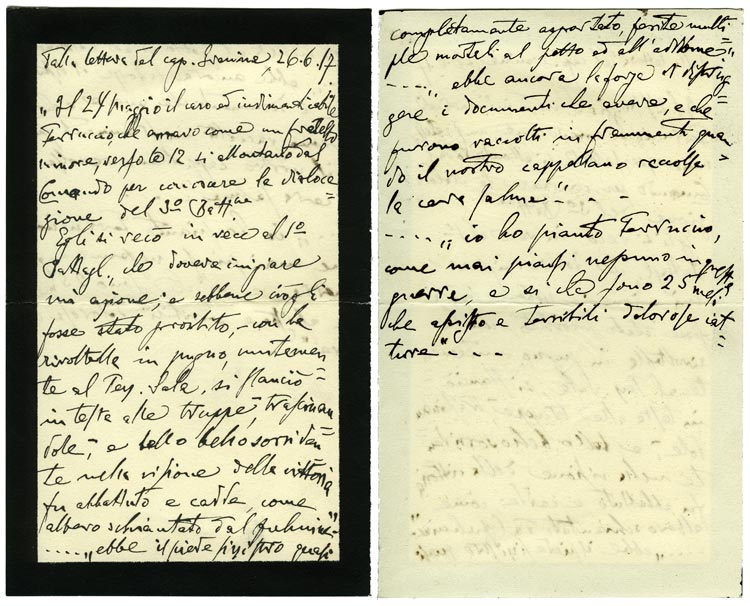 Dalla lettera del cap. 26.6.17
"Il 24 Maggio il caro ed indimenticabile
Ferruccio, che amavo come un fratello
minore, verso le 12 si allontanò dal
Comando per conoscere la disloca=
zione del 3º Batt.ne
Egli si recò in vece al 1º
Battagl., che doveva iniziare
un'azione; e sebbene ciò gli
fosse stato proibito, - con la
rivoltella in pugno, unitamen=
te al Ten. Sala, si slanciò
in testa alle truppe, trascinan
dole; e bello sorriden=
te nella visione della vittoria
fu abbattuto e cadde, come
albero schiantato dal fulmine"-
....." ebbe il piede sinistro quasi
completamente asportato, ferite multi
ple mortali al petto ed all'addome="
....." ebbe ancora la forza di distrug=
gere i documenti che aveva, e che
furono raccolti in frammenti quan=
do il nostro cappellano raccolse
la cara salma" - - -
....." io ho pianto Ferruccio,
come mai piansi nessuno in questa
guerra, e sì che sono 25 mesi
che assisto a terribili dolorose iat=
ture" - - -